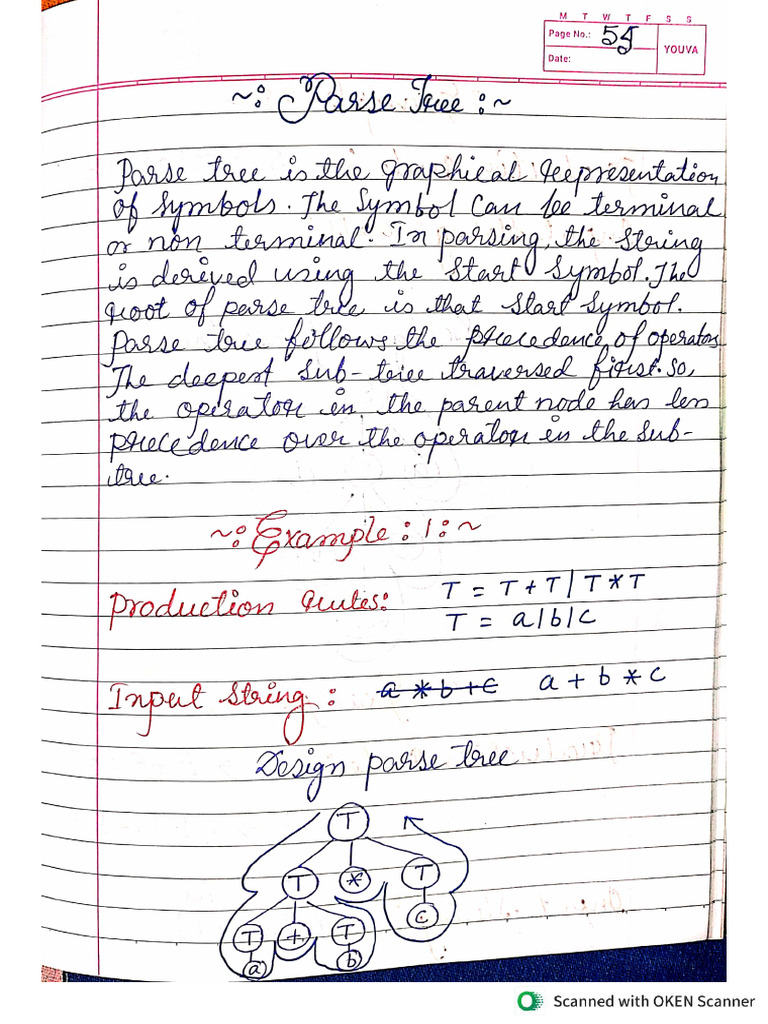 M T W T F S S
Page No.: 59
Date:
YOUVA
~: Parse Tree :~
Parse tree is the graphical representation
of symbols. The symbol can be terminal
or non terminal. In parsing, the string
is derived using the start symbol. The
root of parse tree is that start symbol.
Parse tree follows the precedence of operators
The deepest sub-tree traversed first. so,
the operator in the parent node has less
precedence over the operator in the sub-
tree.
~: Example : 1 : ~
Production rules: T = T+T | T*T
T = a|b|c
Input string : a * b + c a + b * c
Design parse tree
T
T * T
T + T c
a b
Scanned with OKEN Scanner